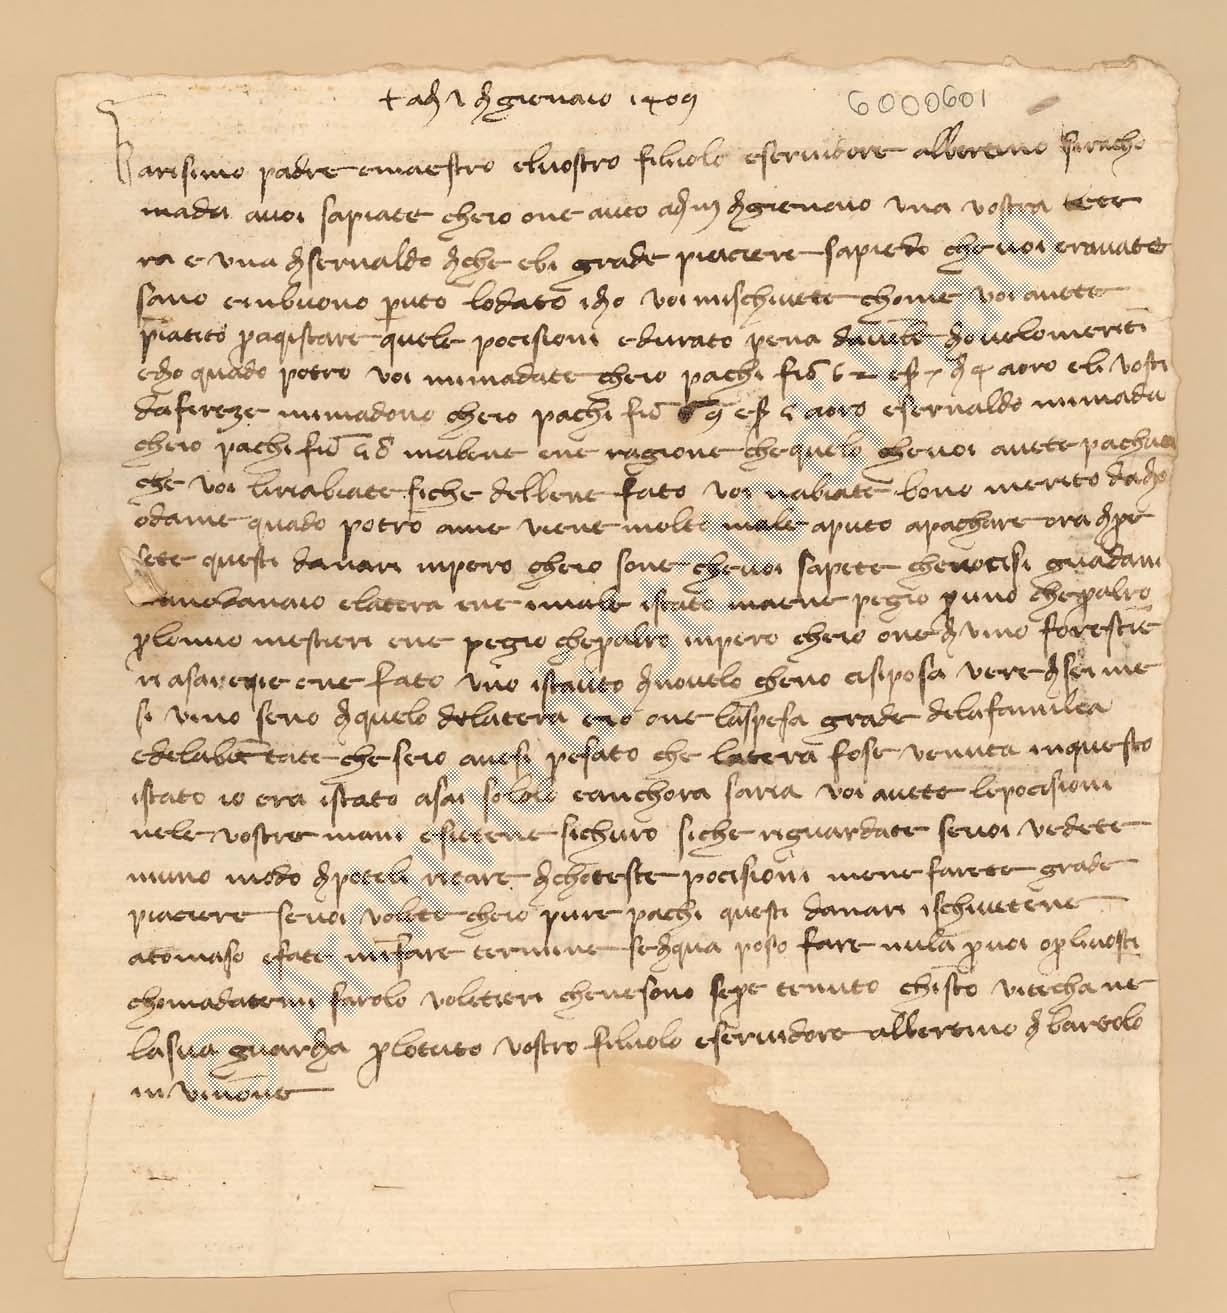 + adi 2 di gienaio 1409
6000601
Karisimo padre e maestro el vostro filiuolo e servidore alberemo si racho
mada avoi sapiate cheio one auto adi di gienaio una vostra lete
ra e una di ser naldo di che ebi grade piaciere sapiedo che voi eravate
sano e in buono puto lodato idio voi mi schivete chome voi avete
piatito p aqistare quele pocisioni e durato pena davele dio velo meriti
edio quado potro voi mi madate cheio pachi fio e s d aoro e li vosti
da fireze mi madono cheio pachi fio e s aoro e ser naldo mi mada
cheio pachi fio ma bene ene ragione che quelo che voi avete pachato
che voi li riabiate siche del bene fato voi nabiate bono merito da dio
o da me quado potro a me viene molto male aputo apachare ora di pe
sete questi danari inpero cheio sone che voi sapete che no ci si guadani
uno danaio e la tera ene i male istato ma ene pegio p uno che p altro
p lo mio mestieri ene pegio che p altro inpero cheio one di vino forestie
ri asai e ene fato uno istauto di novelo che no ci si posa vere di sei me
si vino seno di quelo dela tera eio one la spesa grade dela familia
e dela bitate che se io avesi pesato che la tera fose venuta in questo
istato io era istato asai solo e anchora saria voi avete le pocisioni
nele vostre mani e sietene sichuro siche riguardate se voi vedete
niuno modo di poteli ricare di choteste pocisioni mene farete grade
piaciere se voi volete cheio pure pachi questi danari ischivetene
a tomaso e fate mi fare termine se di qua poso fare nula p voi o p li vosti
chomadatemi farolo voletieri che ne sono sepe tenuto christo vi techa ne
la sua guardia p lo tuto vostro filiuolo e servidore alberemo di bartolo
in vinone